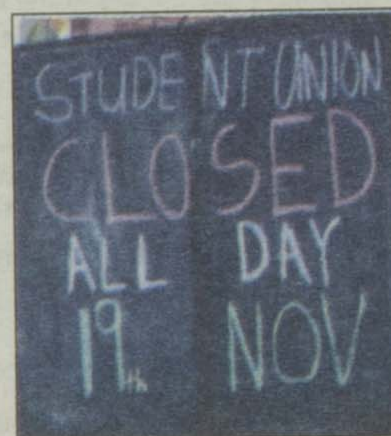 STUDENT UNION
CLOSED
ALL DAY
19th NOV